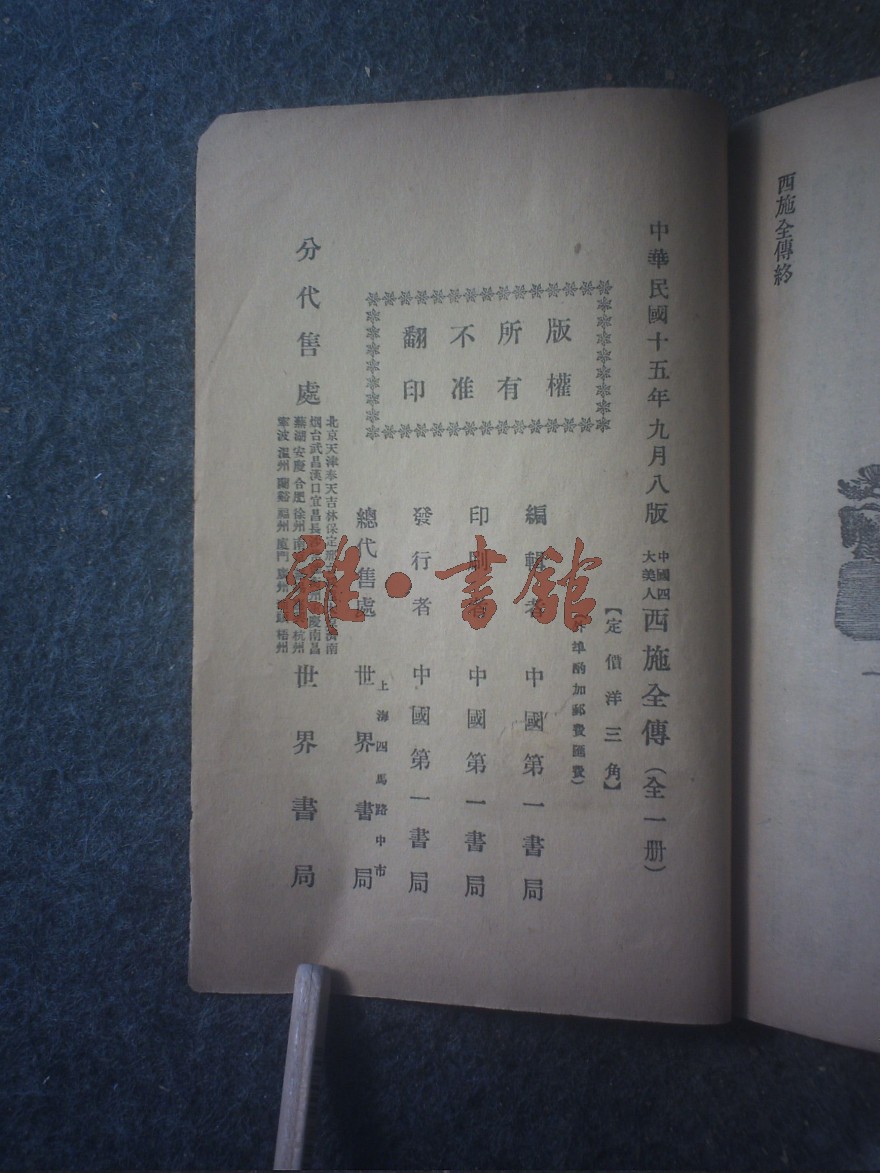 西施全傳終
中華民國十五年九月八版
中國四
大美人
西施全傳（全一册）
【定價洋三角】
酌加郵費匯費）
版權
所有
不准
翻印
編輯者 中國第一書局
印刷者 中國第一書局
發行者 中國第一書局
總代售處 世界書局
上海四馬路中市
分代售處
北京天津奉天吉林保定
烟台武昌漢口宜昌長
蕪湖安慶合肥徐州南
寧波溫州蘭谿福州廈門
濟南
南昌
杭州
梧州
世界書局
雜·書館